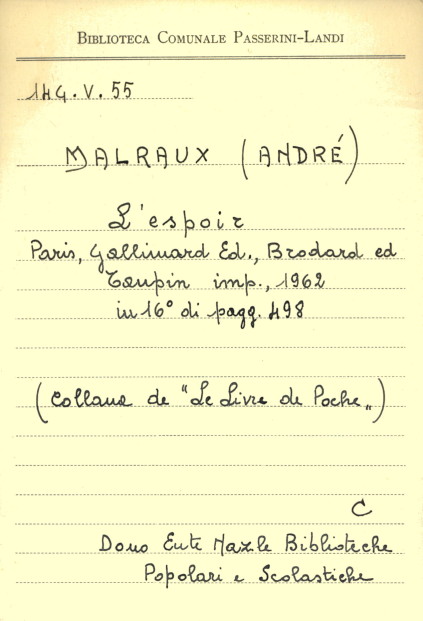 BIBLIOTECA COMUNALE PASSERINI-LANDI
14G.V.55
MALRAUX (ANDRÉ)
L'espoir
Paris, Gallimard Ed., Brodard ed
Taupin imp., 1962
in 16° di pagg. 498
(Collana de "Le Livre de Poche„)
C
Dono Ente Naz.le Biblioteche
Popolari e Scolastiche